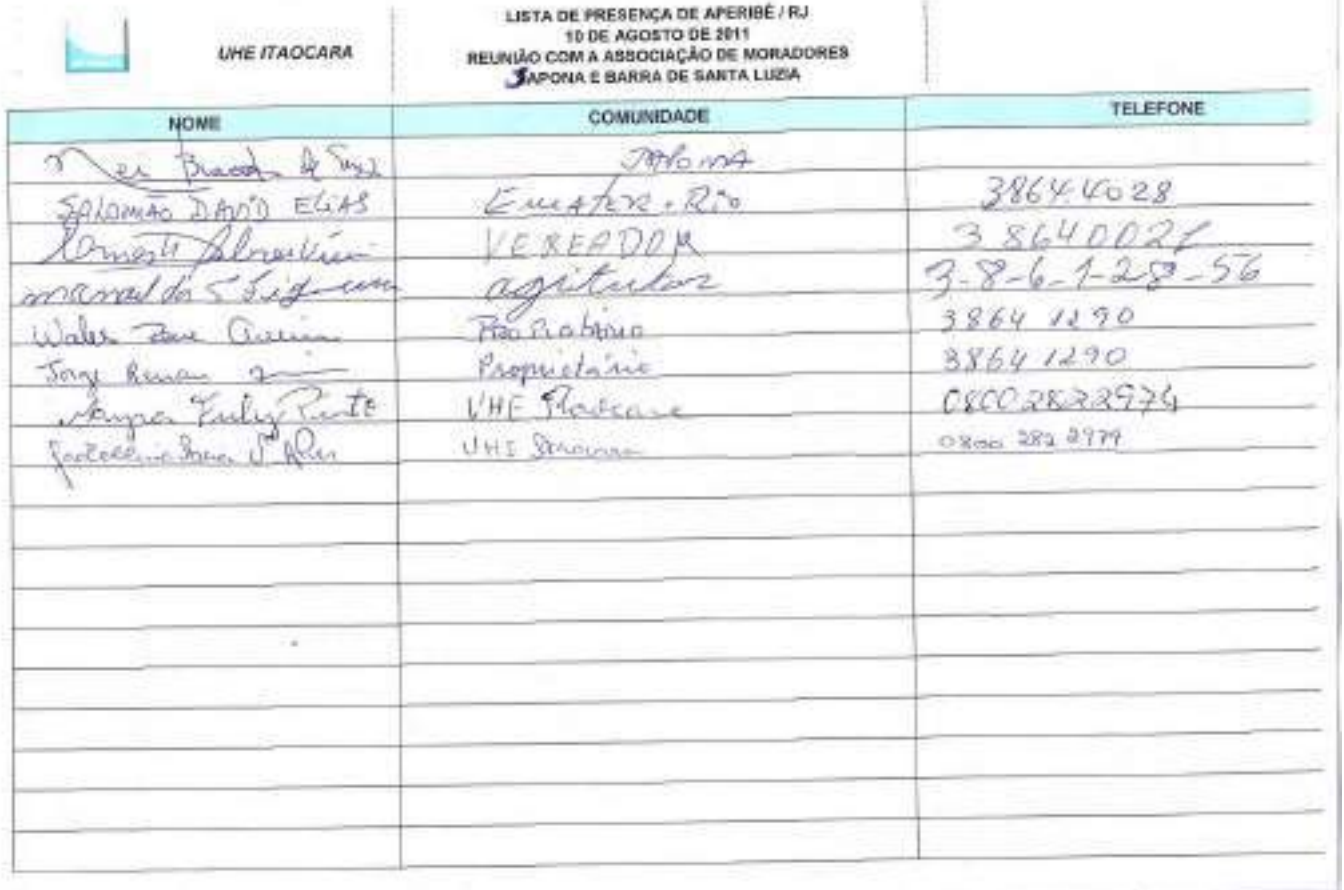 LISTA DE PRESENÇA DE APERIBÉ / RJ
10 DE AGOSTO DE 2011
UHE ITAOCARA
REUNIÃO COM A ASSOCIAÇÃO DE MORADORES
JAPONA E BARRA DE SANTA LUZIA
NOME COMUNIDADE TELEFONE
Nei de Souza JAPONA
SALOMÃO DAVID ELIAS Emater-Rio 3864.4028
VEREADOR 38640027
manoel da agritutor 3-8-6-1-28-56
Proprietário 3864 1290
Jorge Renan Proprietário 3864 1290
UHE Itaocara 08002822974
UHE Itaocara 0800 282 2979